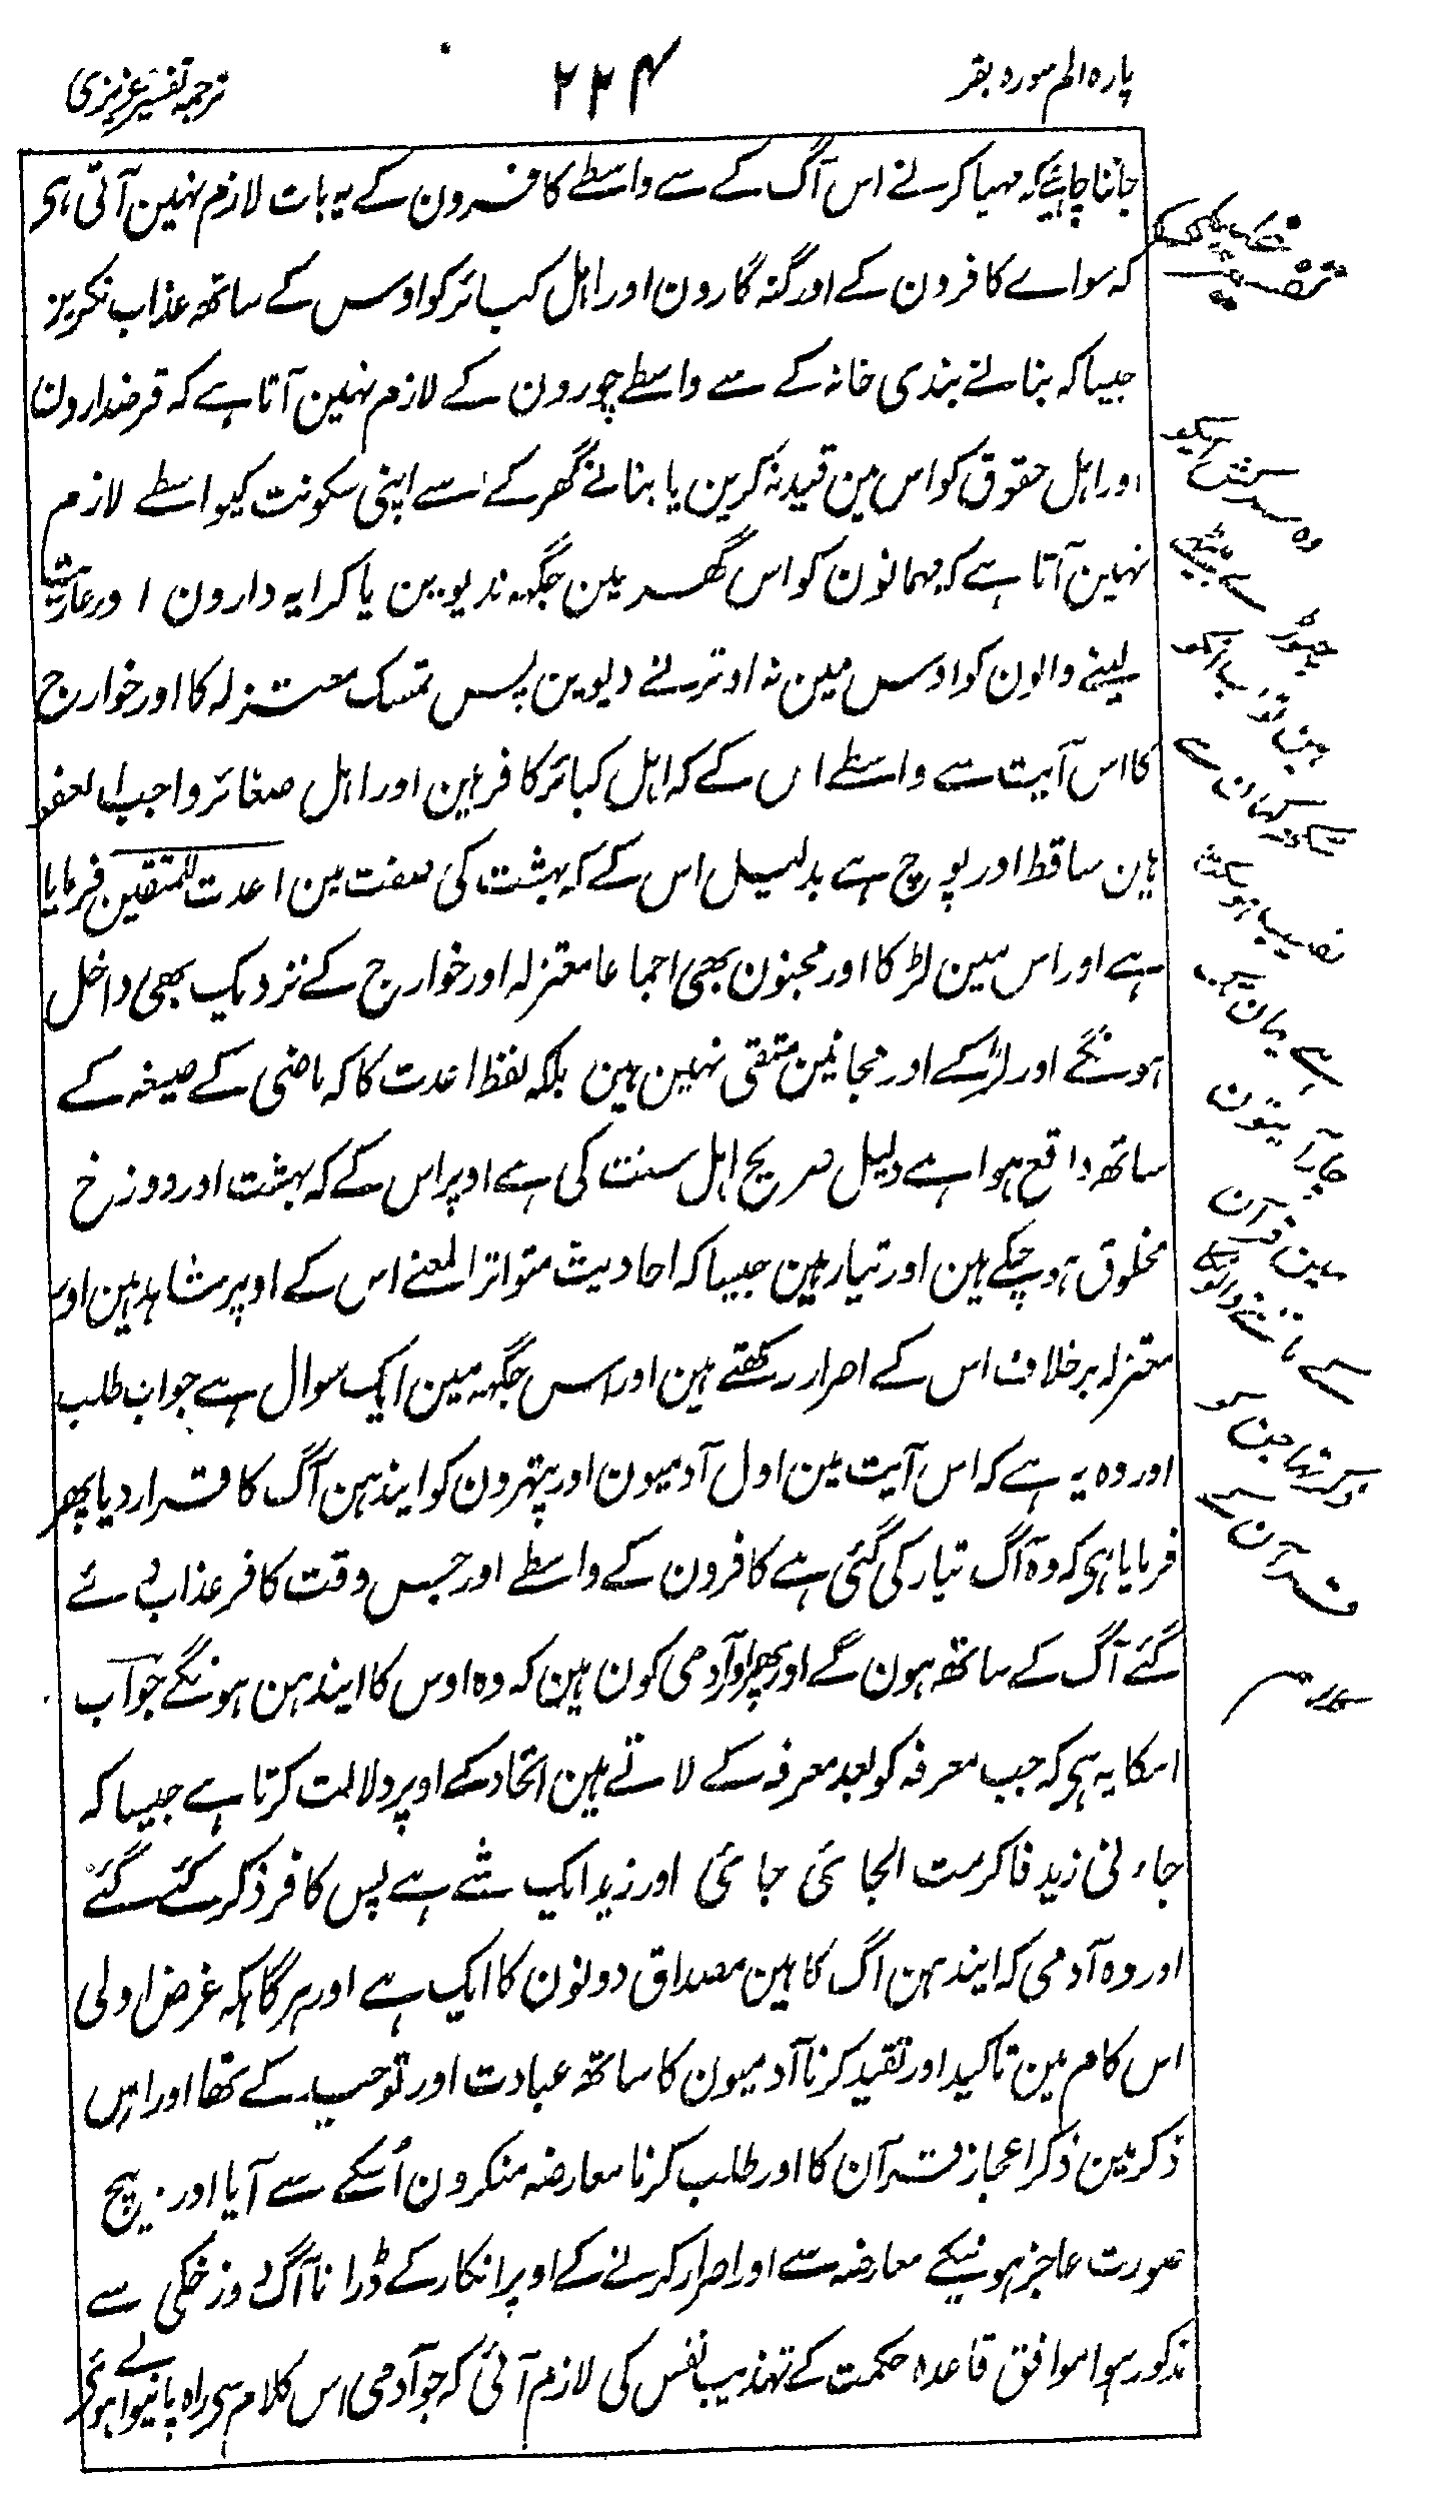 پارہ الم سورہ بقر
۲۲۴
ترجمہ تفسیر عزیزی
جاننا چاہئے کہ مہیا کرنے اس آگ کے سے واسطے کافرون کے یہ بات لازم نہین آتی ہی
کہ سواے کافرون کے اور گنہ گارون اور اہل کبائر کو اوس کے ساتھ عذاب نکرین
جیسا کہ بنانے بندی خانہ کے سے واسطے چورون کے لازم نہین آتا ہے کہ قرضدارون
اور اہل حقوق کو اس مین قید نہ کرین یا بنانے گھر کے سے اپنی سکونت کیواسطے لازم
نہین آتا ہے کہ مہمانون کو اس گھر مین جگہہ ندیوین یا کرایہ دارون اور عاریت
لینے والون کو اوس مین نہ اوترنے دیوین پس تمسک معتزلہ کا اور خوارج
کا اس آیت سے واسطے اس کے کہ اہل کبائر کافر ہین اور اہل صغائر واجب العفو
ہین ساقط اور پوچ ہے بدلیل اس کے کہ بہشت کی صفت مین اعدت للمتقین فرمایا
ہے اور اس مین لڑکا اور مجنون بھی اجماعا معتزلہ اور خوارج کے نزدیک بھی داخل
ہونگے اور لڑکے اور مجانین متقی نہین ہین بلکہ لفظ اعدت کا کہ ماضی کے صیغہ کے
ساتھ واقع ہوا ہے دلیل صریح اہل سنت کی ہے اوپر اس کے کہ بہشت اور دوزخ
مخلوق ہو چکے ہین اور تیار ہین جیسا کہ احادیث متواتر المعنے اس کے اوپر شاہد ہین اور
معتزلہ برخلاف اس کے اصرار رکھتے ہین اور اس جگہہ مین ایک سوال ہے جواب طلب
اور وہ یہ ہے کہ اس آیت مین اول آدمیون اور پتھرون کو ایندہن آگ کا قرار دیا پھر
فرمایا ہی کہ وہ آگ تیار کی گئی ہے کافرون کے واسطے اور جس وقت کافر عذاب کئے
گئے آگ کے ساتھ ہون گے اور پھر اور آدمی کون ہین کہ وہ اوس کا ایندہن ہونگے جواب
اسکا یہ ہی کہ جب معرفہ کو بعد معرفہ کے لاتے ہین اتحاد کے اوپر دلالت کرتا ہے جیسا کہ
جاءنی زید فاکرمت الجائی جائی اور زید ایک شے ہے پس کافر ذکر کئے گئے
اور وہ آدمی کہ ایندہن آگ کا ہین مصداق دونون کا ایک ہے اور ہرگاہکہ غرض اولی
اس کام مین تاکید اور تقید کرنا آدمیون کا ساتھ عبادت اور توحید کے تھا اور اس
ذکر مین ذکر اعجاز قرآن کا اور طلب کرنا معارضہ منکرون اُسکے سے آیا اور بیچ
صورت عاجز ہونیکے معارضہ سے اور اصرار کرنے کے اوپر انکار کے ڈرانا آگ دوزخکی سے
مذکور ہوا موافق قاعدہ حکمت کے تہذیب نفس کی لازم آئی کہ جو آدمی اس کلام سی راہ پانیوالے ہوئی
سرکش
وہ
چھوڑ
نصیب
بیان
چار آیتون
مین قرآن
کے ماننے والونکے
قرآن کے